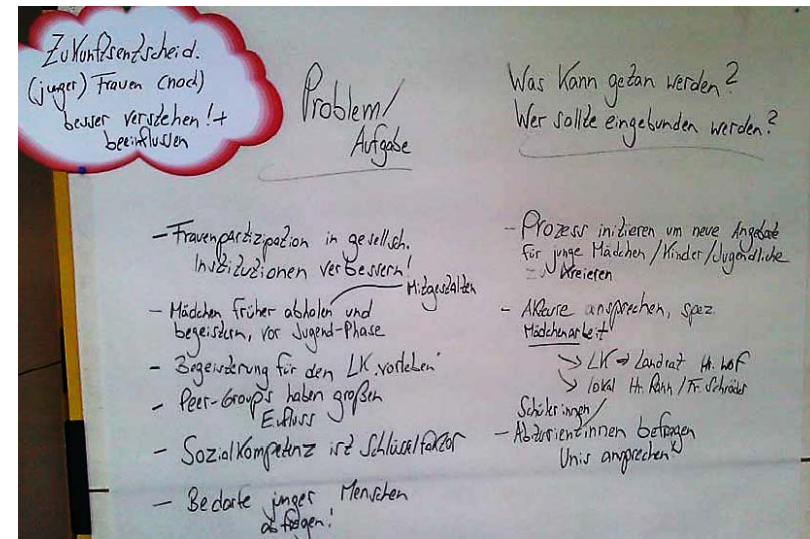 Zukunftsentscheid.
(junger) Frauen (noch)
besser verstehen! +
beeinflussen
Problem/
Aufgabe
- Frauenpartizipation in gesellsch.
Institutionen verbessern!
Mitgestalten
- Mädchen früher abholen und
begeistern, vor Jugend-Phase
- Begeisterung für den LK "vorleben"
- Peer-Group's haben großen
Einfluss
- Sozialkompetenz ist Schlüsselfaktor
- Bedarfe junger Menschen
abfragen!
Was kann getan werden?
Wer sollte eingebunden werden?
- Prozess initiieren um neue Angebote
für junge Mädchen/Kinder/Jugendliche
zu kreieren
- Akteure ansprechen, spez.
Mädchenarbeit
LK → Landrat Hr.
lokal Hr. / Fr. Schröder
Schülerinnen/
- Abiturientinnen befragen
Unis ansprechen